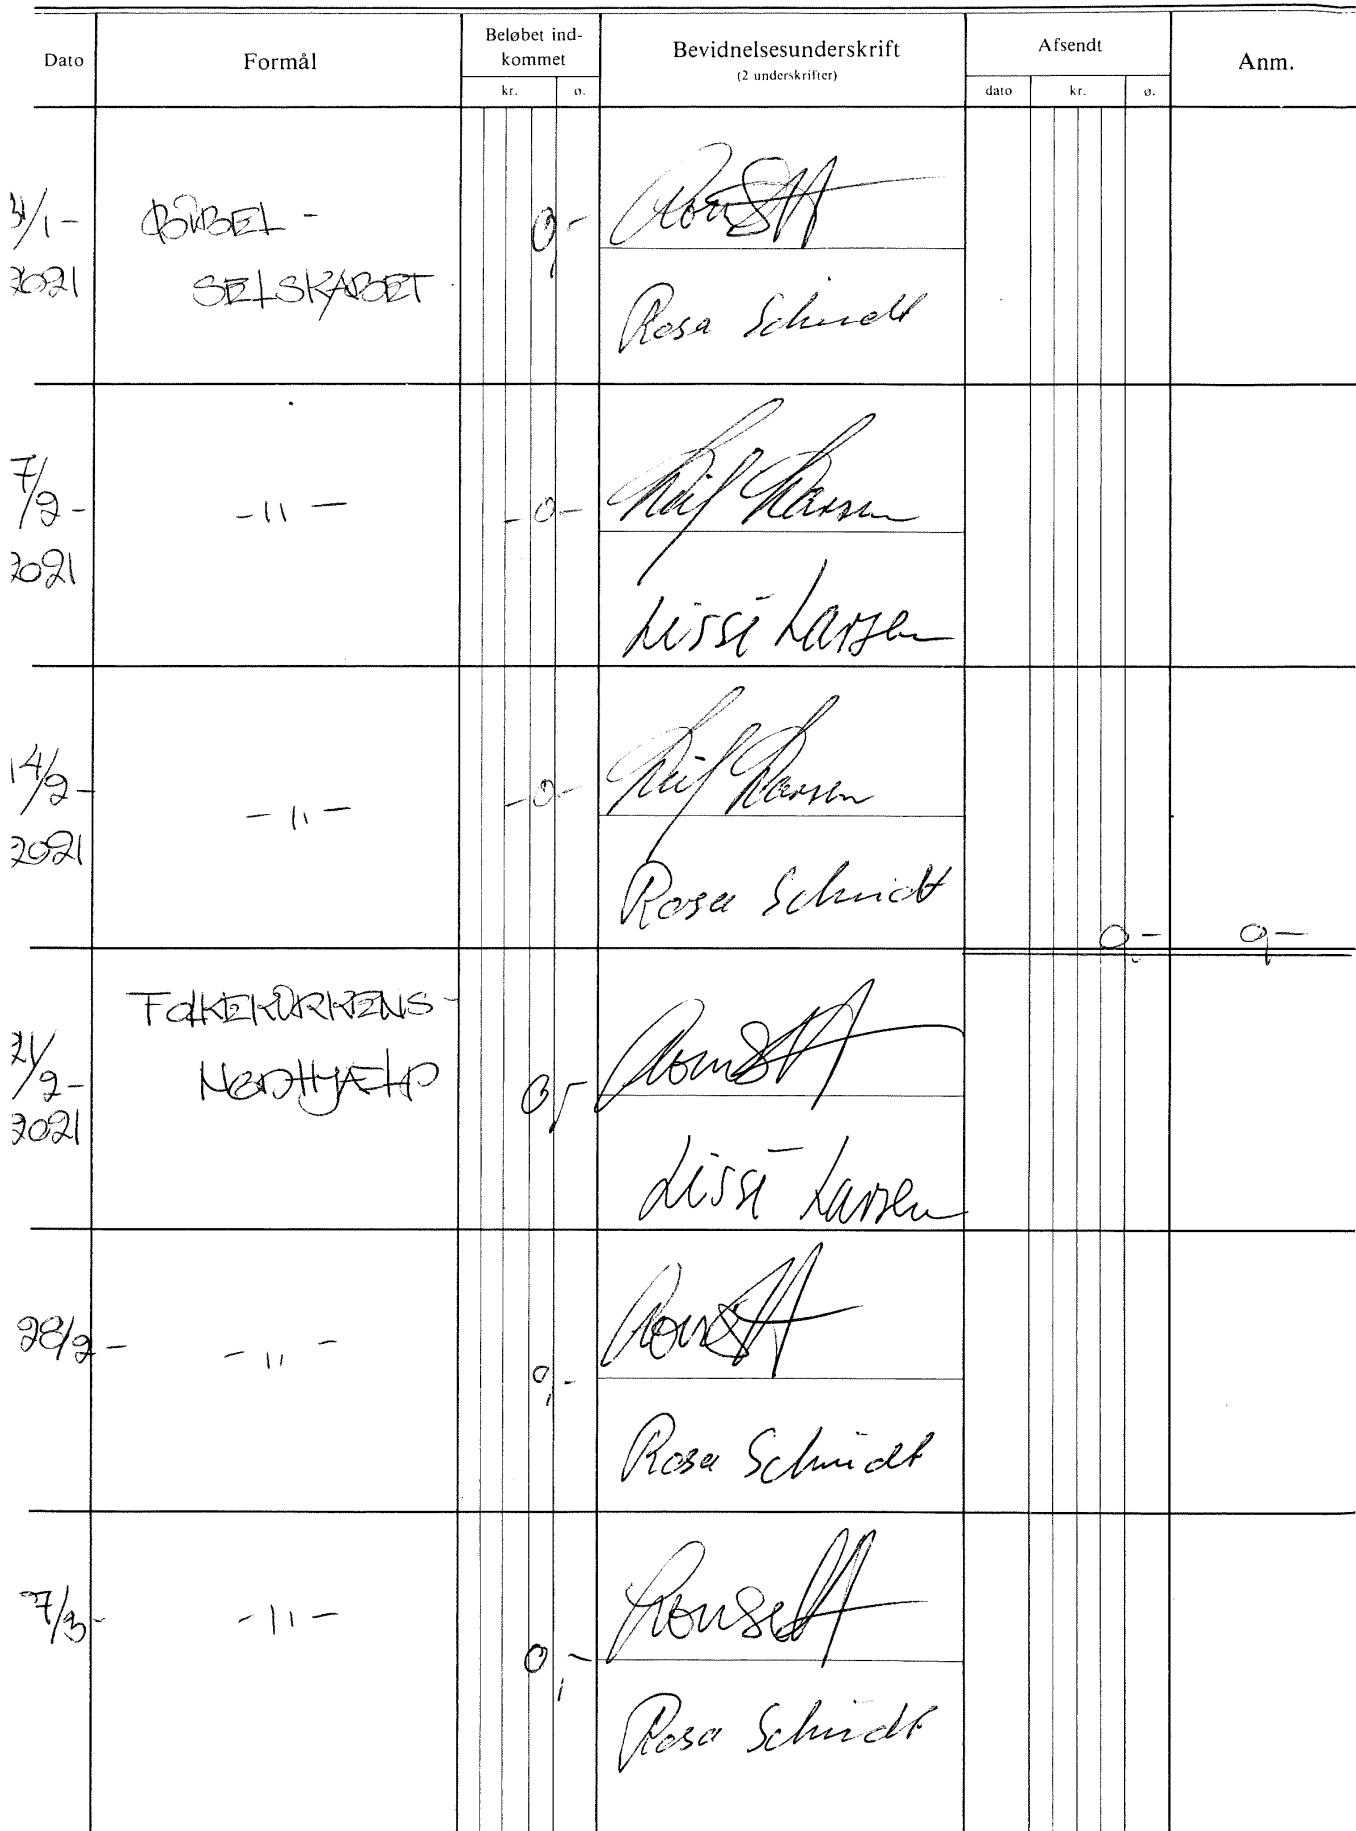 Dato Formål Beløbet ind-
kommet Bevidnelsesunderskrift
(2 underskrifter) Afsendt Anm.
kr. ø. dato kr. ø.
31/1 -
2021
BIBEL -
SELSKABET
0,-
Rosa Schmidt
7/2 -
2021
- 11 -
- 0 -
Leif Larsen
Lissi Larsen
14/2 -
2021
- 11 -
- 0 -
Leif Larsen
Rosa Schmidt
0,- 0,-
21/2 -
2021
FOLKEKIRKENS -
NØDHJÆLP
0,-
Lissi Larsen
28/2 -
- 11 -
0,-
Rosa Schmidt
7/3 -
- 11 -
0,-
Rosa Schmidt